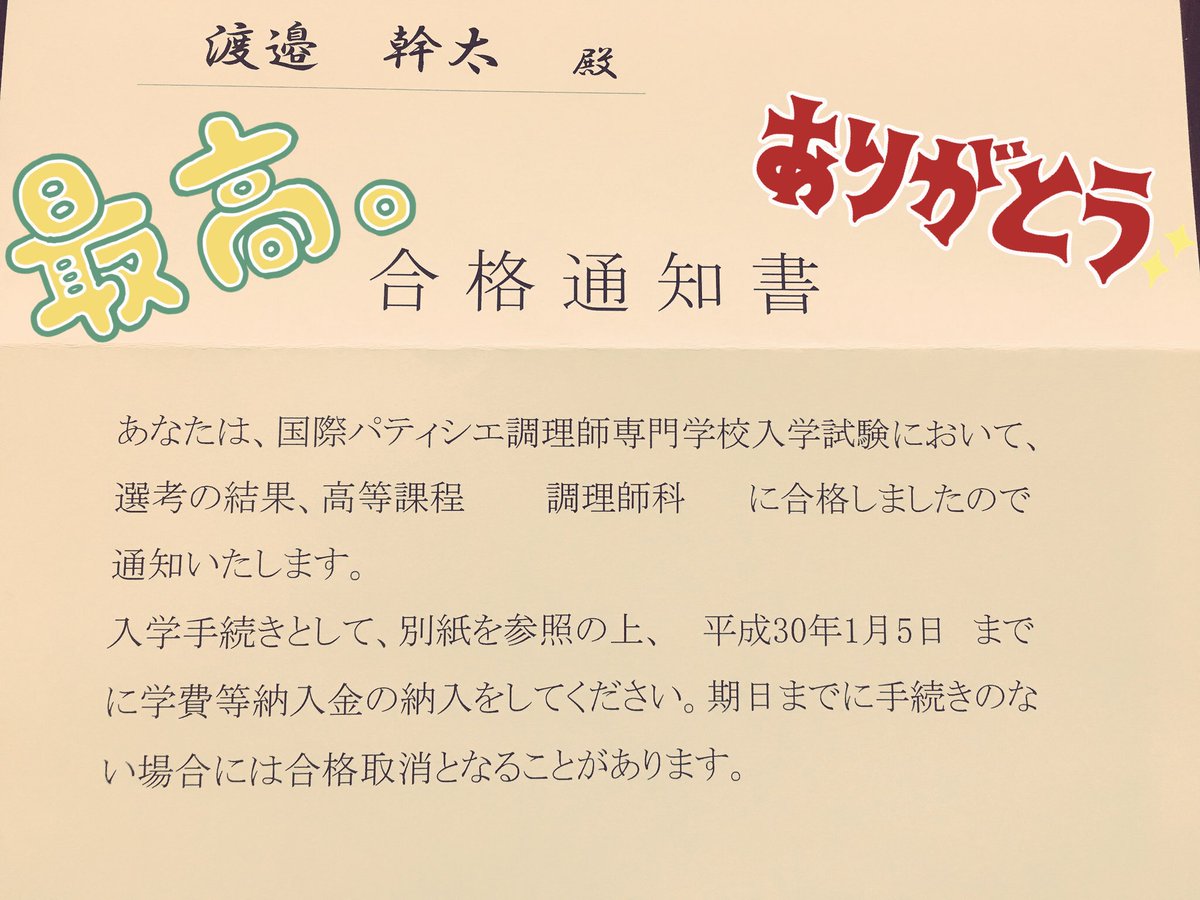 渡邉 幹太 殿
最高。
ありがとう
合格通知書
あなたは、国際パティシエ調理師専門学校入学試験において、
選考の結果、高等課程 調理師科 に合格しましたので
通知いたします。
入学手続きとして、別紙を参照の上、 平成30年1月5日 まで
に学費等納入金の納入をしてください。期日までに手続きのな
い場合には合格取消となることがあります。